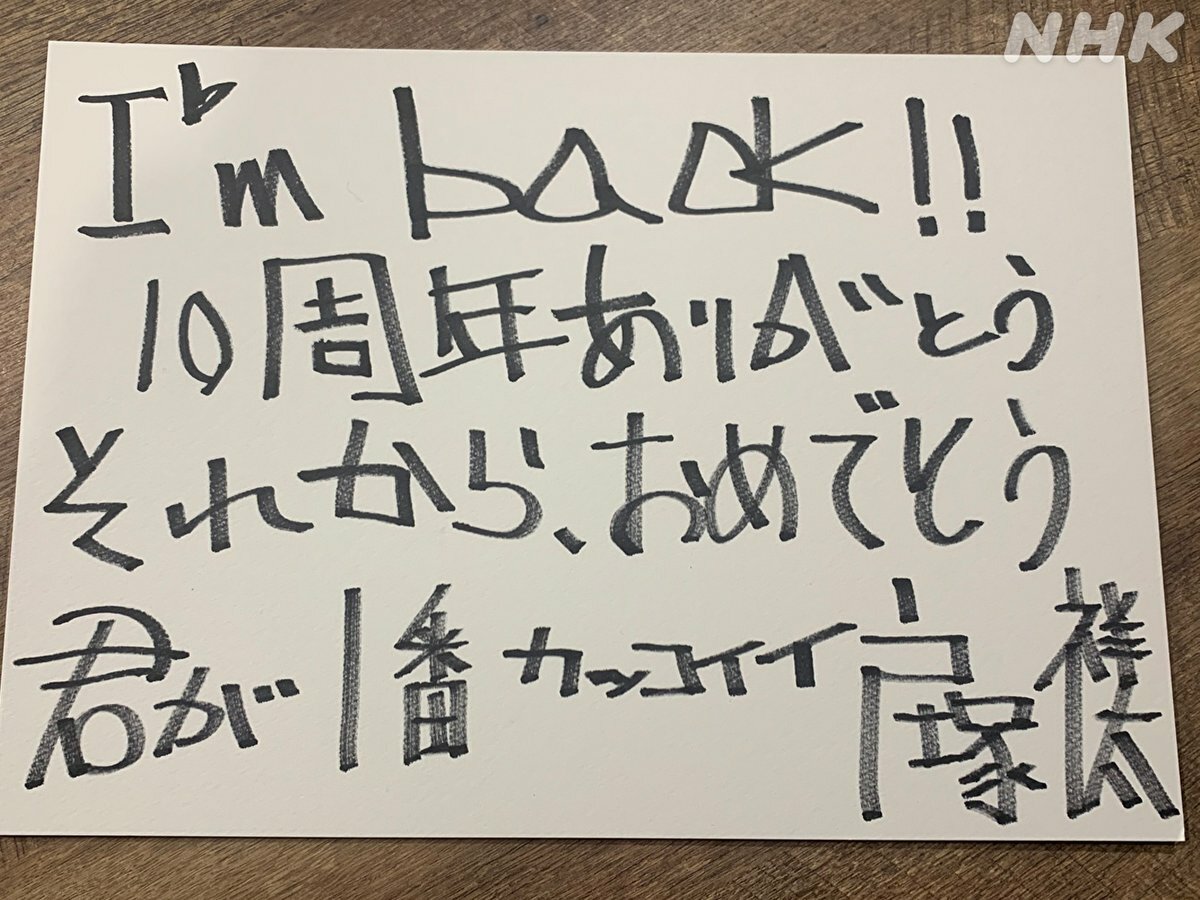 NHK
I'm back!!
10周年ありがとう
それから、おめでとう
君が1番カッコイイ 戸塚祥太